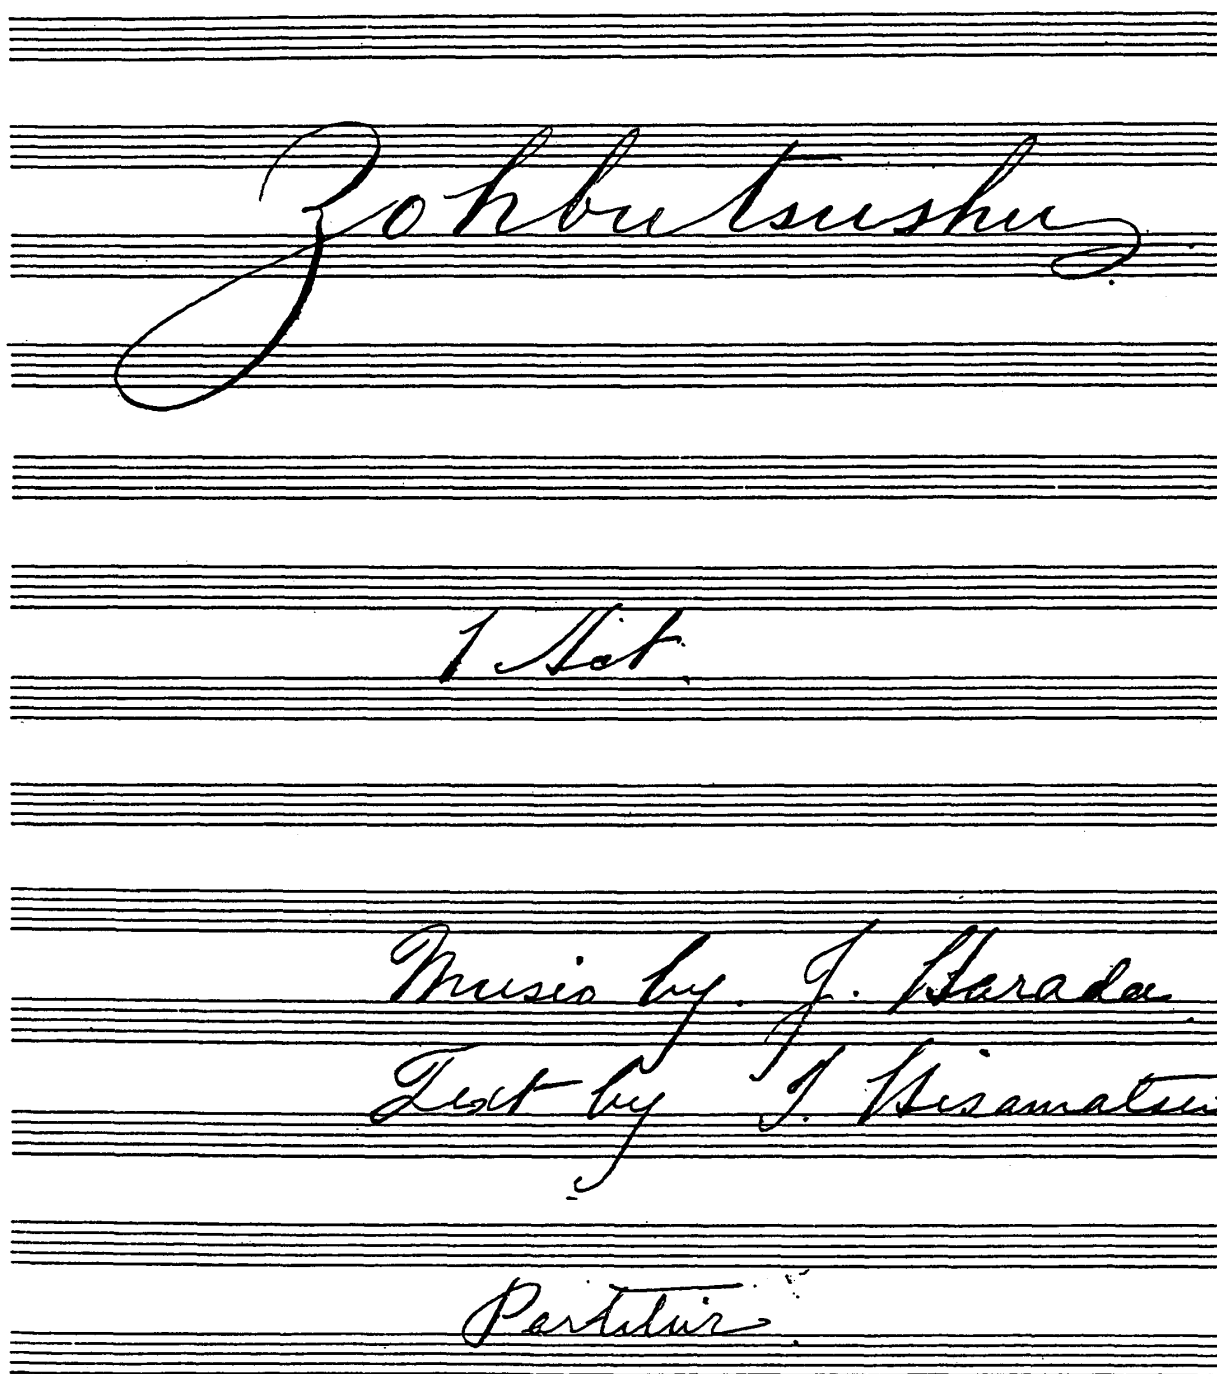 Zohbutsushu.
1 Act.
Music by. J. Harada.
Text by J. Hisamatsu
Partitur.